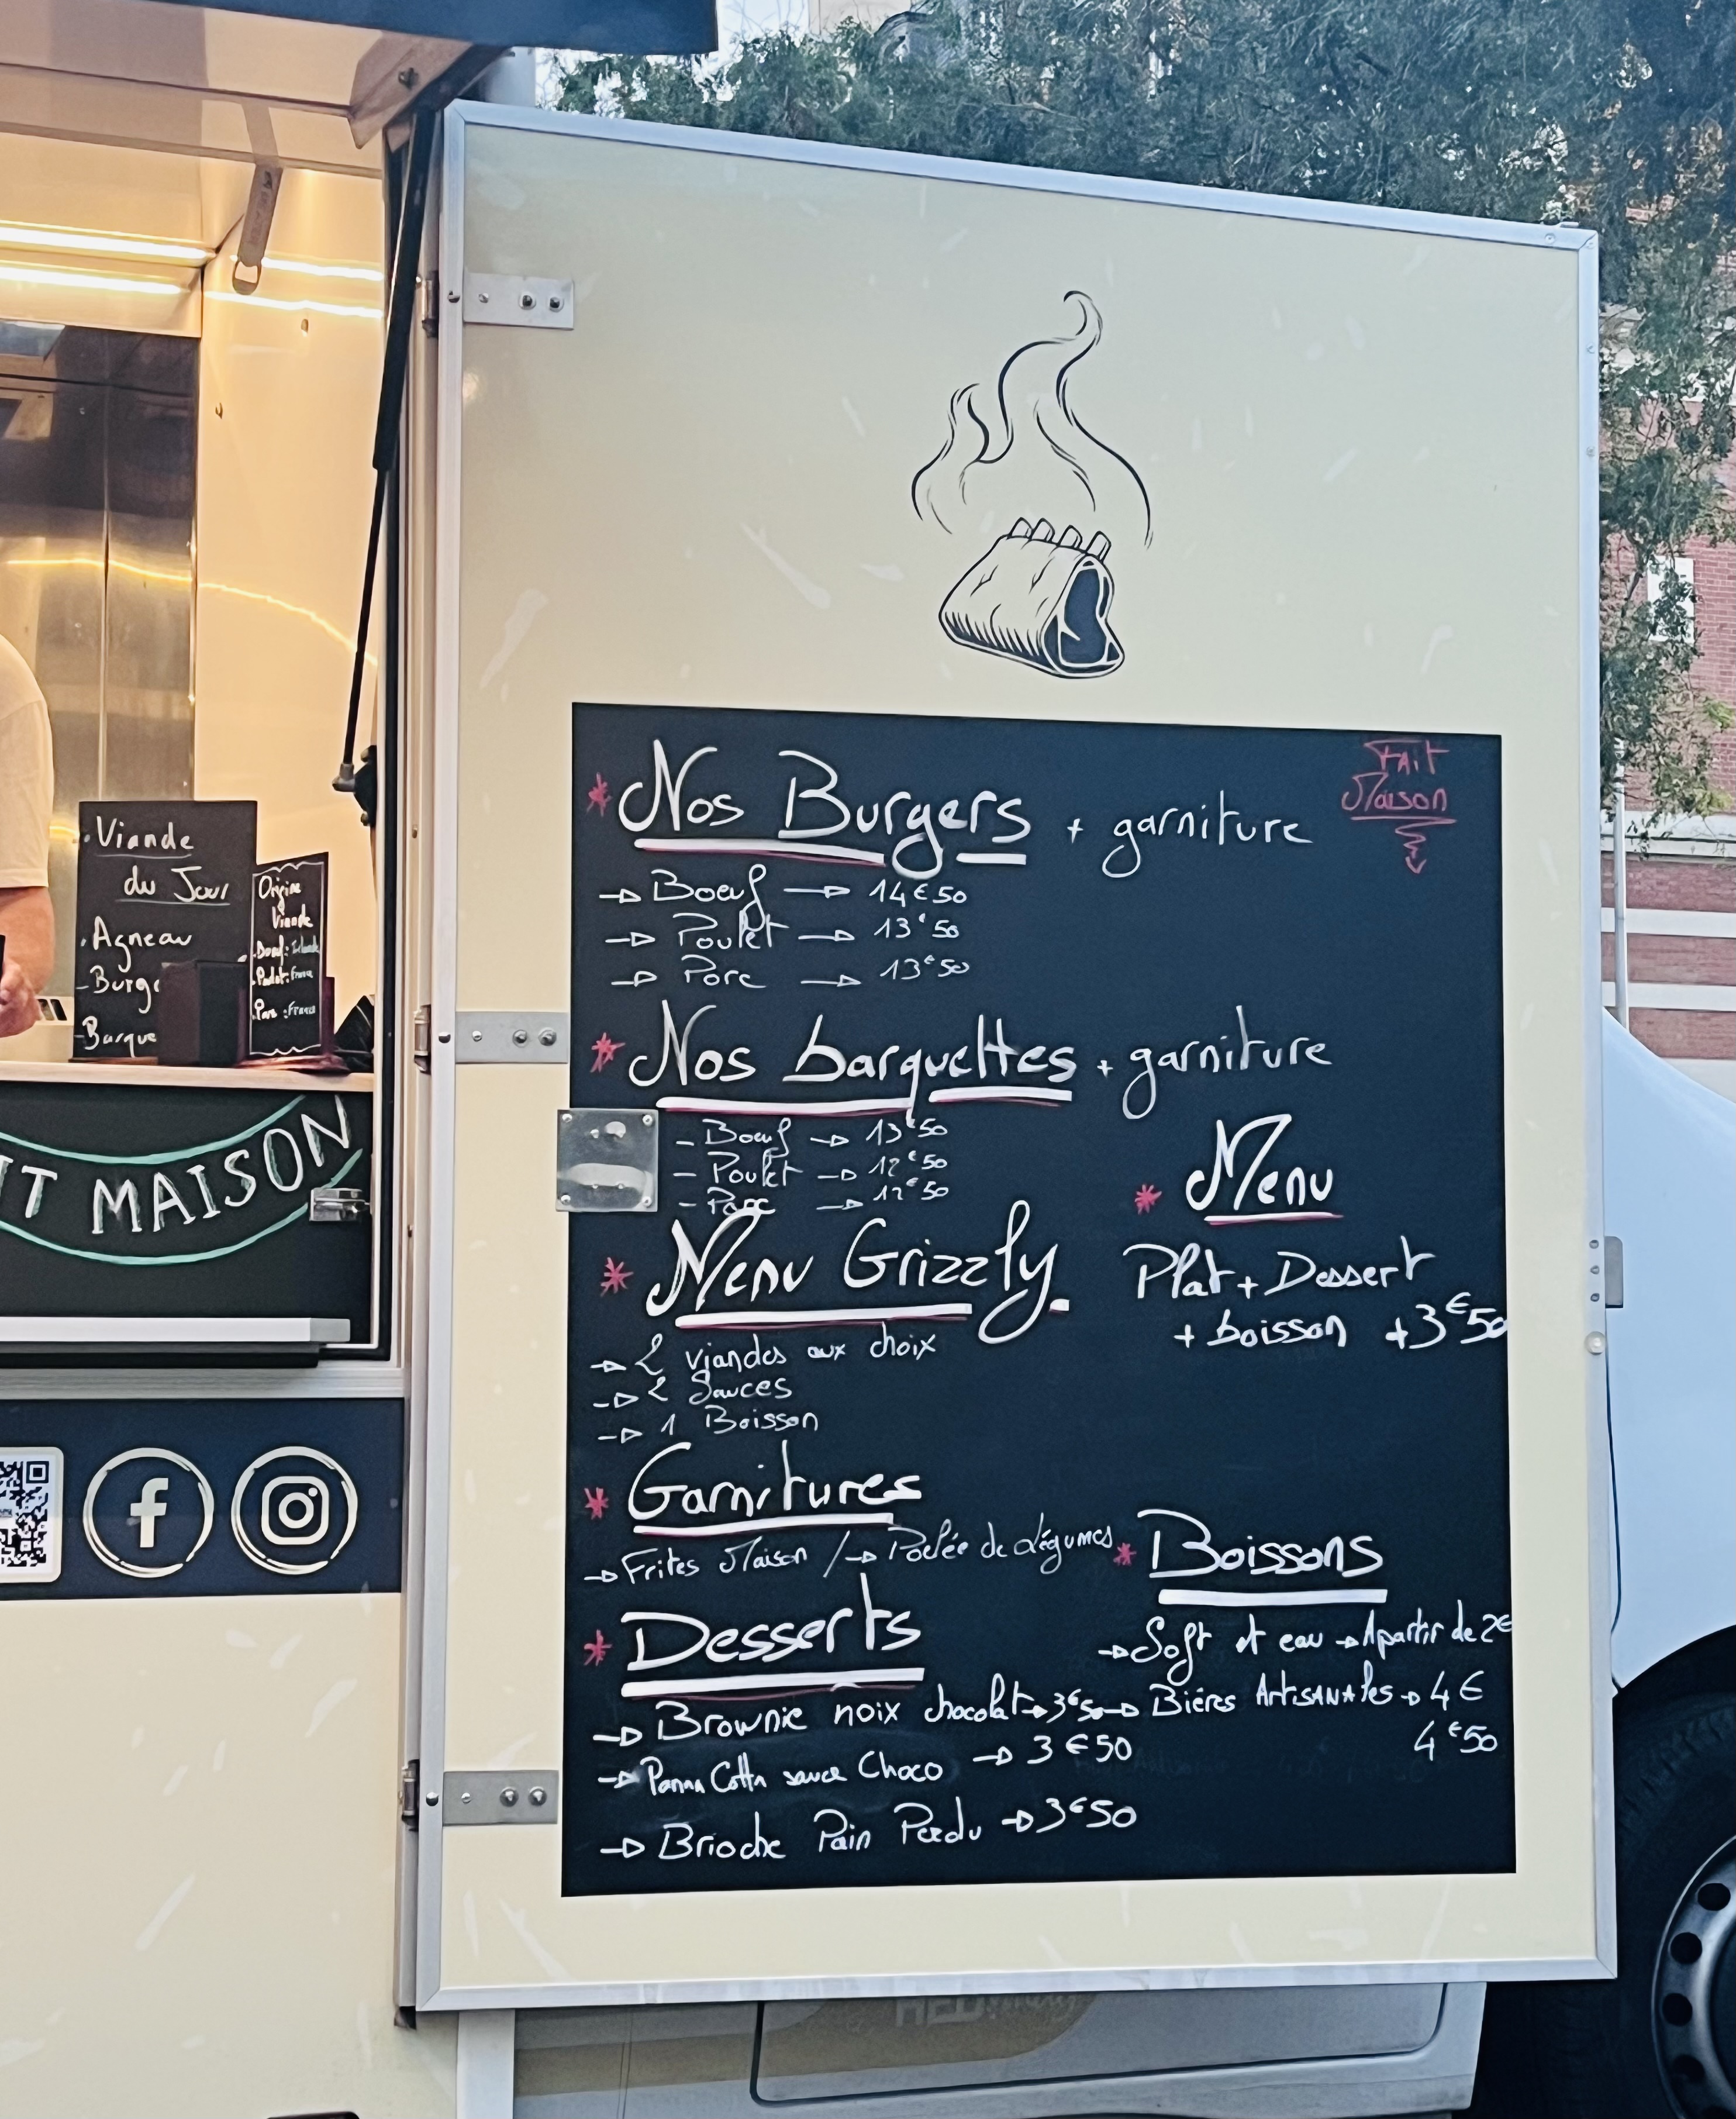 Viande
du Jour
Agneau
- Burge
- Barque
Origine
Viande
Boeuf : Irlande
Poulet : France
Porc : France
IT MAISON
* Nos Burgers + garniture
Fait
Maison
→ Boeuf → 14€50
→ Poulet → 13€50
→ Porc → 13€50
* Nos barquettes + garniture
- Boeuf → 13€50
- Poulet → 12€50
- Porc → 12€50
* Menu
Plat + Dessert
+ boisson +3€50
* Menu Grizzly
→ 2 viandes aux choix
→ 2 Sauces
→ 1 Boisson
* Garnitures
→ Frites Maison / → Poelée de légumes
* Boissons
→ Soft et eau → A partir de 2€
→ Bières ArtisANAles → 4€
4€50
* Desserts
→ Brownie noix chocolat → 3€50
→ Panna Cotta sauce Choco → 3€50
→ Brioche Pain Perdu → 3€50